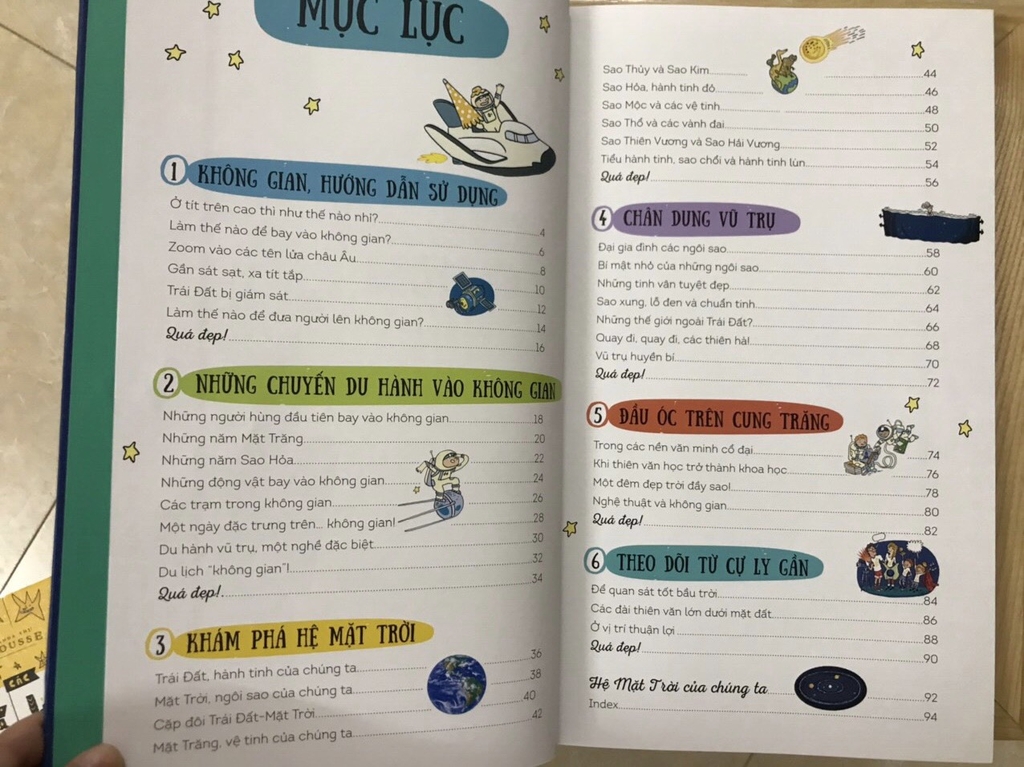 MỤC LỤC
1 KHÔNG GIAN, HƯỚNG DẪN SỬ DỤNG
Ở tít trên cao thì như thế nào nhỉ? 4
Làm thế nào để bay vào không gian? 6
Zoom vào các tên lửa châu Âu 8
Gần sát sạt, xa tít tắp 10
Trái Đất bị giám sát 12
Làm thế nào để đưa người lên không gian? 14
Quá đẹp! 16
2 NHỮNG CHUYẾN DU HÀNH VÀO KHÔNG GIAN
Những người hùng đầu tiên bay vào không gian 18
Những năm Mặt Trăng 20
Những năm Sao Hỏa 22
Những động vật bay vào không gian 24
Các trạm trong không gian 26
Một ngày đặc trưng trên... không gian! 28
Du hành vũ trụ, một nghề đặc biệt 30
Du lịch "không gian"! 32
Quá đẹp! 34
3 KHÁM PHÁ HỆ MẶT TRỜI
Trái Đất, hành tinh của chúng ta 36
Mặt Trời, ngôi sao của chúng ta 38
Cặp đôi Trái Đất-Mặt Trời 40
Mặt Trăng, vệ tinh của chúng ta 42
Sao Thủy và Sao Kim 44
Sao Hỏa, hành tinh đỏ 46
Sao Mộc và các vệ tinh 48
Sao Thổ và các vành đai 50
Sao Thiên Vương và Sao Hải Vương 52
Tiểu hành tinh, sao chổi và hành tinh lùn 54
Quá đẹp! 56
4 CHÂN DUNG VŨ TRỤ
Đại gia đình các ngôi sao 58
Bí mật nhỏ của những ngôi sao 60
Những tinh vân tuyệt đẹp 62
Sao xung, lỗ đen và chuẩn tinh 64
Những thế giới ngoài Trái Đất? 66
Quay đi, quay đi, các thiên hà! 68
Vũ trụ huyền bí 70
Quá đẹp! 72
5 ĐẦU ÓC TRÊN CUNG TRĂNG
Trong các nền văn minh cổ đại 74
Khi thiên văn học trở thành khoa học 76
Một đêm đẹp trời đầy sao! 78
Nghệ thuật và không gian 80
Quá đẹp! 82
6 THEO DÕI TỪ CỰ LY GẦN
Để quan sát tốt bầu trời 84
Các đài thiên văn lớn dưới mặt đất 86
Ở vị trí thuận lợi 88
Quá đẹp! 90
Hệ Mặt Trời của chúng ta 92
Index 94
OUSSE
CÁC